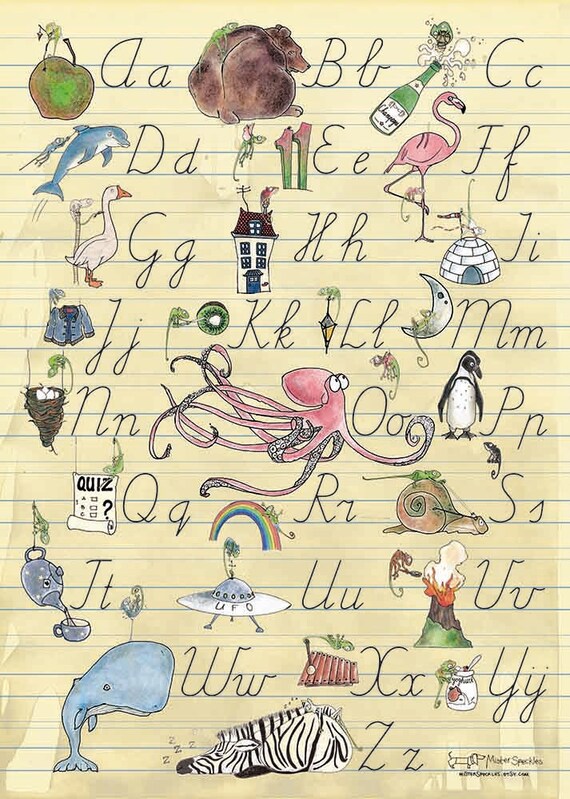 Aa Bb Cc
Champagne
Dd 11 Ee Ff
Gg Hh Ii
Jj Kk Ll Mm
Nn Oo Pp
QUIZ
A
B
C
?
Qq Rr Ss
Tt UFO Uu Vv
Ww Xx Yy
yoghurt
z z z
Zz
Mister Speckles
MISTERSPECKLES.ETSY.COM